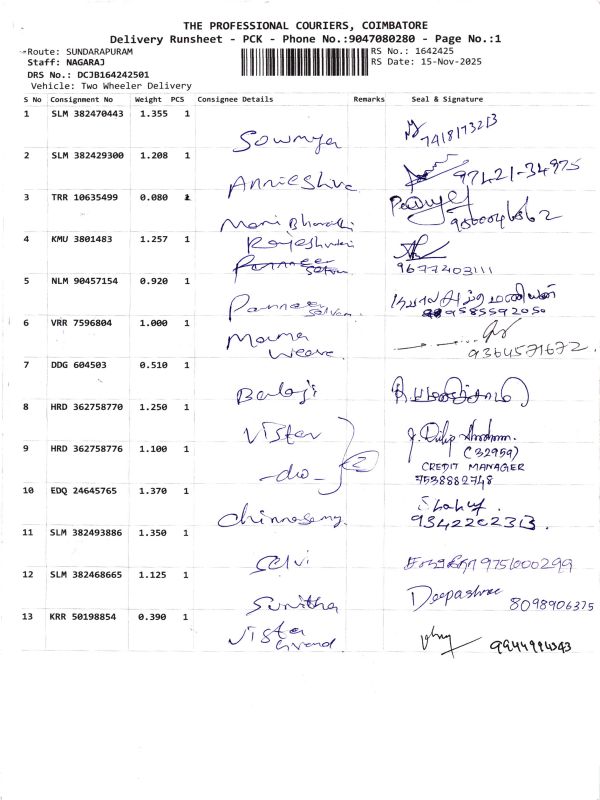 THE PROFESSIONAL COURIERS, COIMBATORE
Delivery Runsheet - PCK - Phone No.:9047080280 - Page No.:1
Route: SUNDARAPURAM RS No.: 1642425
Staff: NAGARAJ RS Date: 15-Nov-2025
DRS No.: DCJB164242501
Vehicle: Two Wheeler Delivery
S No Consignment No Weight PCS Consignee Details Remarks Seal & Signature
1 SLM 382470443 1.355 1
Sowmya 7418173213
2 SLM 382429300 1.208 1
97421-34975
3 TRR 10635499 0.080 1
Mani Bharathi
4 KMU 3801483 1.257 1
Rajeshwari
9677403111
5 NLM 90457154 0.920 1
Panneer
Selvam 9585592050
6 VRR 7596804 1.000 1
Mama
Weave. 9364571672.
7 DDG 604503 0.510 1
Balaji
8 HRD 362758770 1.250 1
Vistar
9 HRD 362758776 1.100 1
-do- 2 (32959)
CREDIT MANAGER
7538882748
10 EDQ 24645765 1.370 1
Chinnasamy. 9342202313.
11 SLM 382493886 1.350 1
Selvi 9751000299
12 SLM 382468665 1.125 1
Sunitha Deepashree 8098906375
13 KRR 50198854 0.390 1
Vistar
Grand. 9944994343